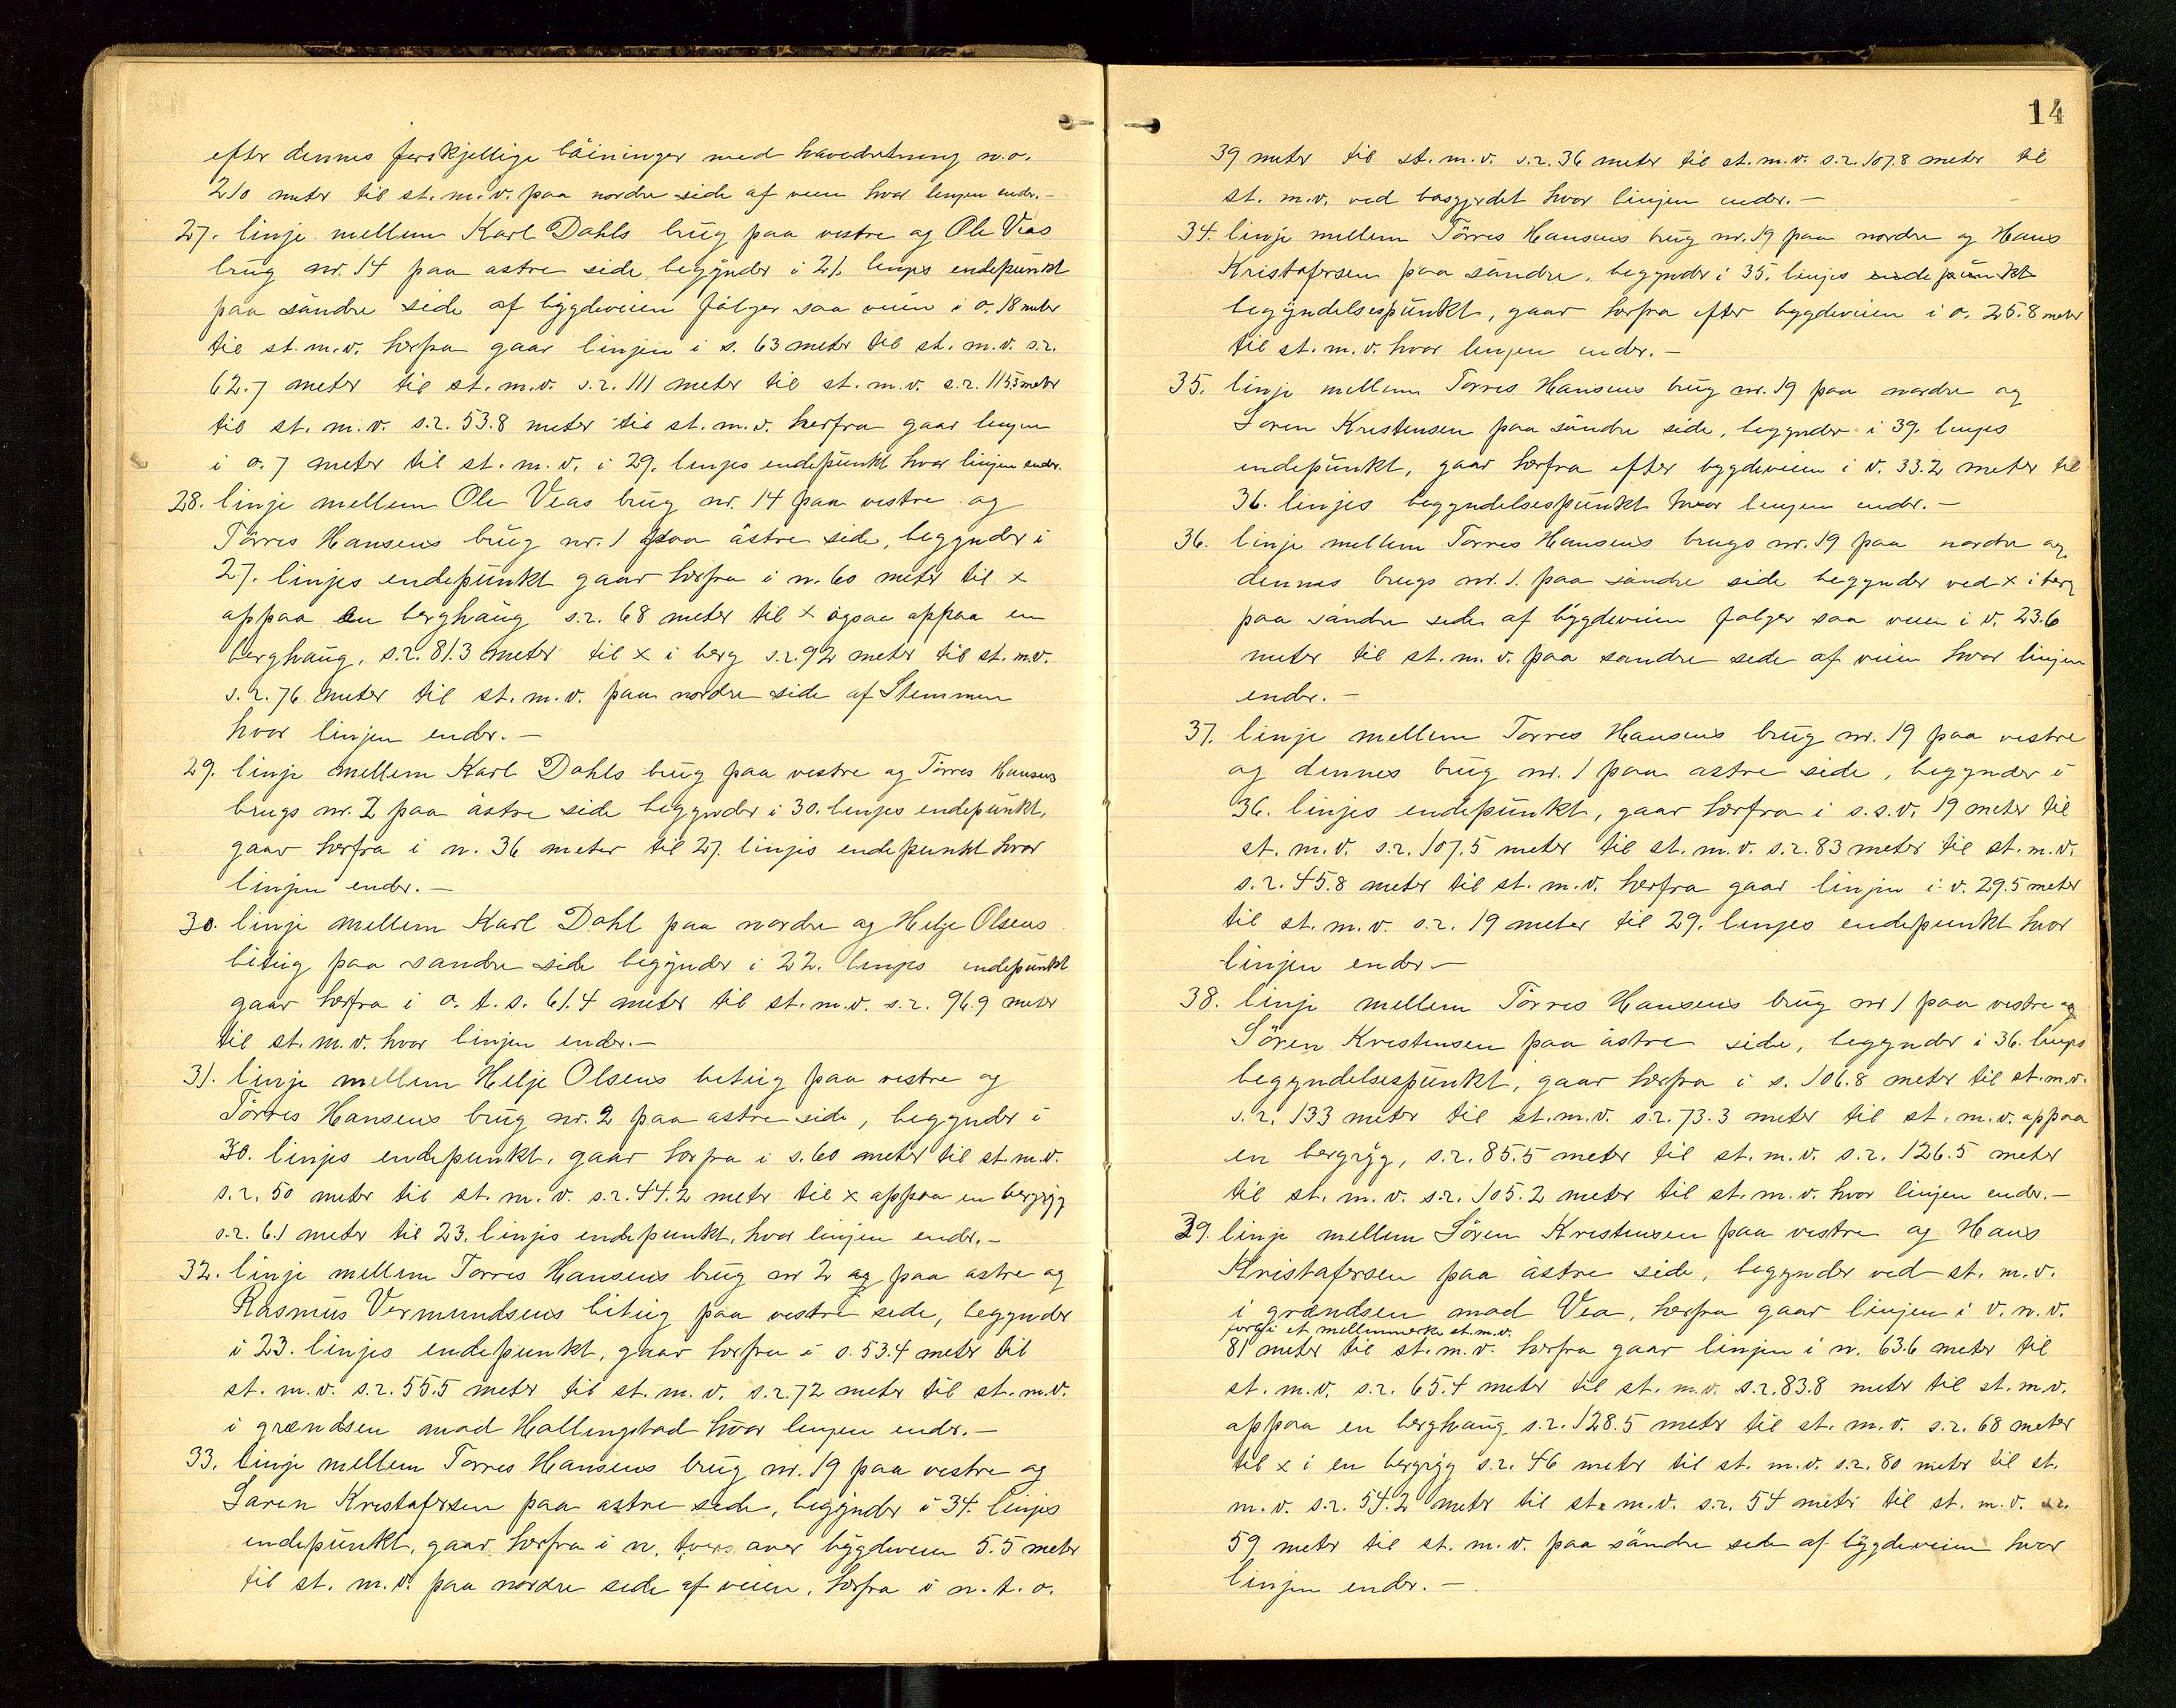 efter dennes forskjellige böininger med hovedretning n.o.
210 meter til st. m. v. paa nordre side af veien hvor linjen ender.-
27. linje mellem Karl Dahls brug paa vestre og Ole Veas
brug nr. 14 paa östre side, begynder i 21. linjes endepunkt
paa söndre side af bygdeveien fölger saa veien i o. 18 meter
til st. m.v. herfra gaar linjen i s. 63 meter til st. m. v. s.r.
62.7 meter til st. m.v. s.r. 111 meter til st. m.v. s.r. 115.5 meter
til st. m.v. s.r. 53.8 meter til st. m.v. herfra gaar linjen
i o. 7 meter til st. m. v. i 29. linjes endepunkt hvor linjen ender.
28. linje mellem Ole Veas brug nr. 14 paa vestre og
Törres Hansens brug nr. 1 paa östre side, begynder i
27. linjes endepunkt gaar herfra i n. 60 meter til x
oppaa en berghaug s.r. 68 meter til x ogsaa oppaa en
berghaug, s.r. 81.3 meter til x i berg s.r. 92 meter til st. m.v.
s.r. 76 meter til st. m.v. paa nordre side af Stemmen
hvor linjen ender.-
29. linje mellem Karl Dahls brug paa vestre og Törres Hansens
brugs nr. 2 paa östre side begynder i 30. linjes endepunkt,
gaar herfra i n. 36 meter til 27. linjes endepunkt hvor
linjen ender.-
30. linje mellem Karl Dahl paa nordre og Helje Olsens
biteig paa söndre side begynder i 22. linjes endepunkt
gaar herfra i o. t. s. 61.4 meter til st. m.v. s.r. 96.9 meter
til st. m.v. hvor linjen ender.-
31. linje mellem Helje Olsens biteig paa vestre og
Törres Hansens brug nr. 2 paa östre side, begynder i
30. linjes endepunkt, gaar herfra i s. 60 meter til st. m.v.
s.r. 50 meter til st. m.v. s.r. 44.2 meter til x oppaa en bergryg
s.r. 61 meter til 23. linjes endepunkt, hvor linjen ender.-
32. linje mellem Törres Hansens brug nr 2 og paa östre og
Rasmus Vermundsens biteig paa vestre side, begynder
i 23. linjes endepunkt, gaar herfra i s. 53.4 meter til
st. m.v. s.r. 55.5 meter til st. m.v. s.r. 72 meter til st. m.v.
i grændsen mod Hallingstad hvor linjen ender.-
33. linje mellem Törres Hansens brug nr. 19 paa vestre og
Sören Kristofersen paa östre side, begynder i 34. linjes
endepunkt, gaar herfra i n. tvers over bygdeveien 5.5 meter
til st. m.v. paa nordre side af veien, herfra i n. t. o.
14
39 meter til st. m.v. s.r. 36 meter til st. m.v. s.r. 107.8 meter til
st. m.v. ved bosgjerdet hvor linjen ender.-
34. linje mellem Törres Hansens brug nr. 19 paa nordre og Hans
Kristofersen paa söndre, begynder i 35. linjes endepunkt
begyndelsespunkt, gaar herfra efter bygdeveien i o. 25.8 meter
til st. m.v. hvor linjen ender.-
35. linje mellem Törres Hansens brug nr. 19 paa nordre og
Sören Kristensen paa söndre side, begynder i 39. linjes
endepunkt, gaar herfra efter bygdeveien i v. 33.2 meter til
36. linjes begyndelsespunkt hvor linjen ender.-
36. linje mellem Törres Hansens brugs nr. 19 paa nordre og
dennes brugs nr. 1. paa söndre side begynder ved x i berg
paa söndre side af bygdeveien fölger saa veien i v. 23.6
meter til st. m. v. paa söndre side af veien hvor linjen
ender.-
37. linje mellem Törres Hansens brug nr. 19 paa vestre
og dennes brug nr. 1 paa östre side, begynder i
36. linjes endepunkt, gaar herfra i s.s.v. 19 meter til
st. m.v. s.r. 107.5 meter til st. m.v. s.r. 83 meter til st. m.v.
s.r. 45.8 meter til st. m.v. herfra gaar linjen i v. 29.5 meter
til st. m.v. s.r. 19 meter til 29. linjes endepunkt hvor
linjen ender-
38. linje mellem Törres Hansens brug nr 1 paa vestre og
Sören Kristensen paa östre side, begynder i 36. linjes
begyndelsespunkt, gaar herfra i s. 106.8 meter til st. m.v.
s.r. 133 meter til st. m.v. s.r. 73.3 meter til st. m.v. oppaa
en bergryg, s.r. 85.5 meter til st. m.v. s.r. 126.5 meter
til st. m.v. s.r. 105.2 meter til st. m.v. hvor linjen ender.-
39. linje mellem Sören Kristensen paa vestre og Hans
Kristofersen paa östre side, begynder ved st. m.v.
i grændsen mod Vea, herfra gaar linjen i v. n. v.
forbi et mellemmerke st. m.v.
81 meter til st. m.v. herfra gaar linjen i n. 63.6 meter til
st. m.v. s.r. 65.4 meter til st. m.v. s.r. 83.8 meter til st. m.v.
oppaa en berghaug s.r. 128.5 meter til st. m.v. s.r. 68 meter
til x i en bergryg s.r. 46 meter til st. m.v. s.r. 80 meter til st.
m.v. s.r. 54.2 meter til st. m.v. s.r. 54 meter til st. m.v. s.r.
59 meter til st. m.v. paa söndre side af bygdeveien hvor
linjen ender.-